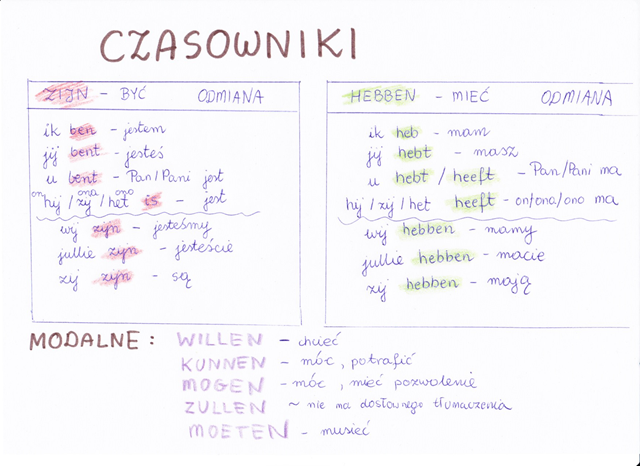 CZASOWNIKI
ZIJN - BYĆ ODMIANA
ik ben - jestem
jij bent - jesteś
u bent - Pan/Pani jest
on ona ono
hij / zij / het is - jest
wij zijn - jesteśmy
jullie zijn - jesteście
zij zijn - są
HEBBEN - MIEĆ ODMIANA
ik heb - mam
jij hebt - masz
u hebt / heeft - Pan/Pani ma
hij / zij / het heeft - on/ona/ono ma
wij hebben - mamy
jullie hebben - macie
zij hebben - mają
MODALNE: WILLEN - chcieć
KUNNEN - móc, potrafić
MOGEN - móc, mieć pozwolenie
ZULLEN ~ nie ma dosłownego tłumaczenia
MOETEN - musieć